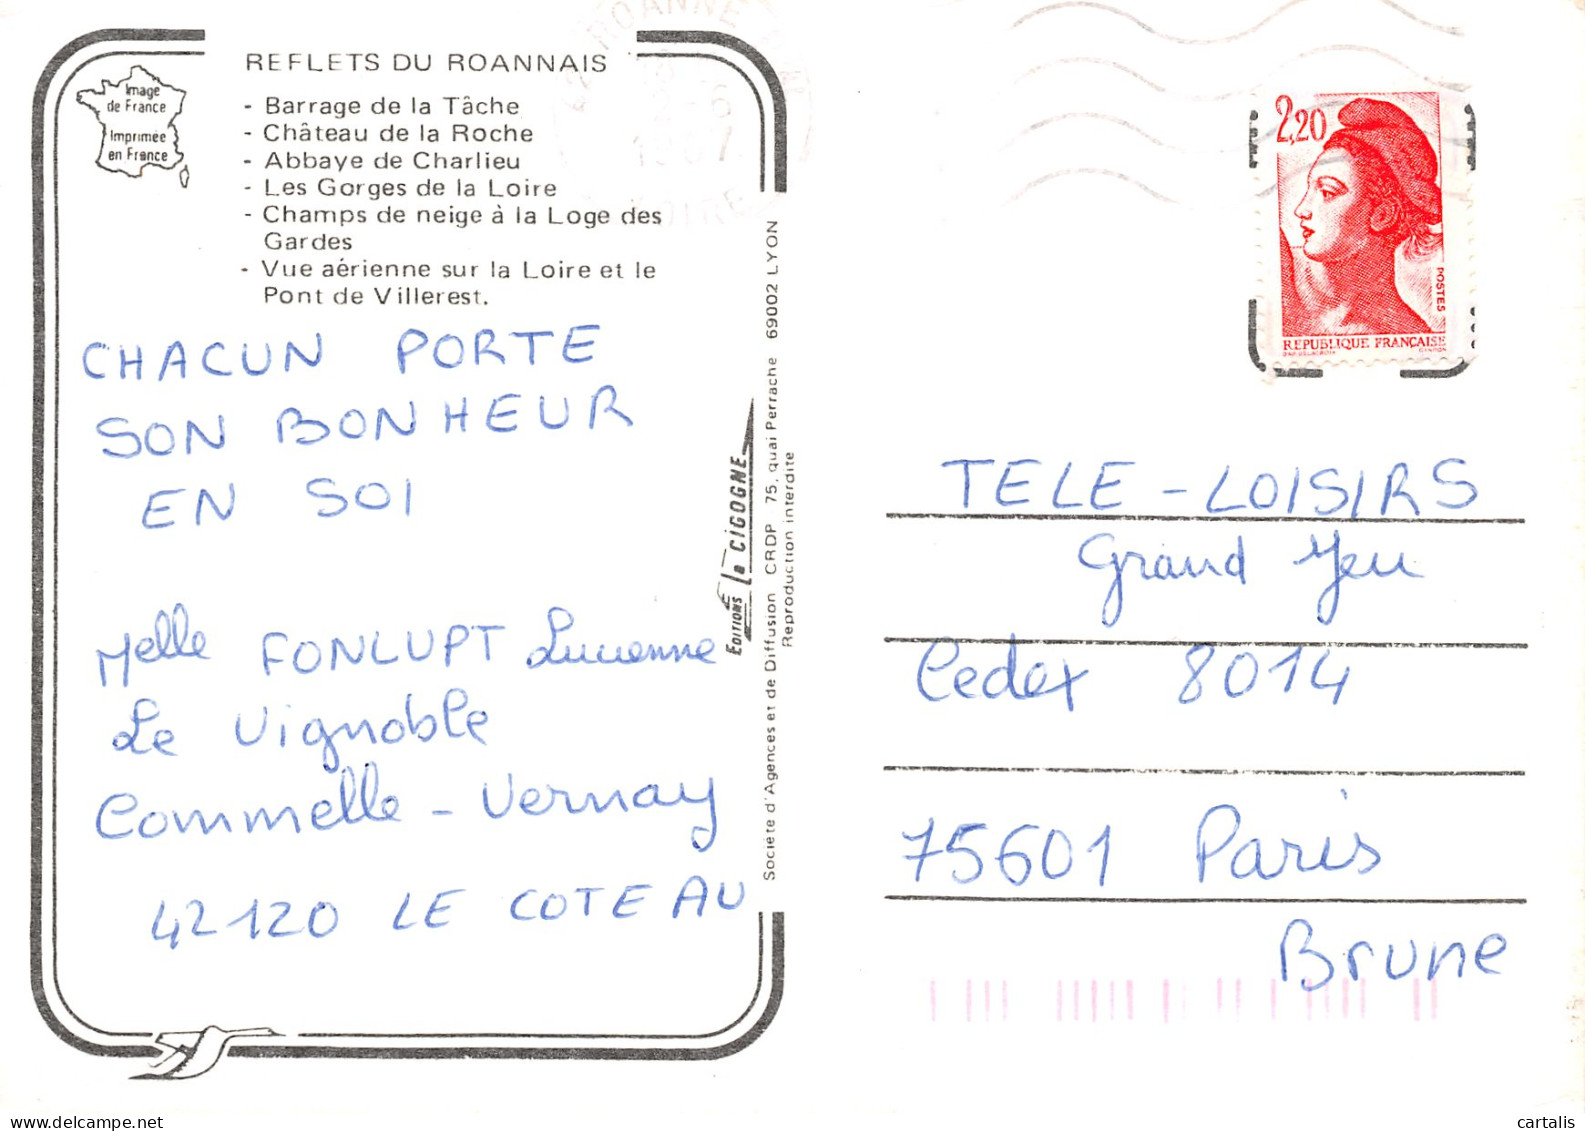 REFLETS DU ROANNAIS
Image
de France
Imprimée
en France
- Barrage de la Tâche
- Château de la Roche
- Abbaye de Charlieu
- Les Gorges de la Loire
- Champs de neige à la Loge des
Gardes
- Vue aérienne sur la Loire et le
Pont de Villerest.
CHACUN PORTE
SON BONHEUR
EN SOI
Melle FONLUPT Lucienne
Le Vignoble
Commelle - Vernay
42120 LE COTEAU
EDITIONS La CIGOGNE
Société d'Agences et de Diffusion CRDP 75, quai Perrache 69002 LYON
Reproduction interdite
ROANNE
LOIRE
2,20
POSTES
REPUBLIQUE FRANÇAISE
TELE - LOISIRS
Grand Jeu
Cedex 8014
75601 Paris
Brune
cartalis